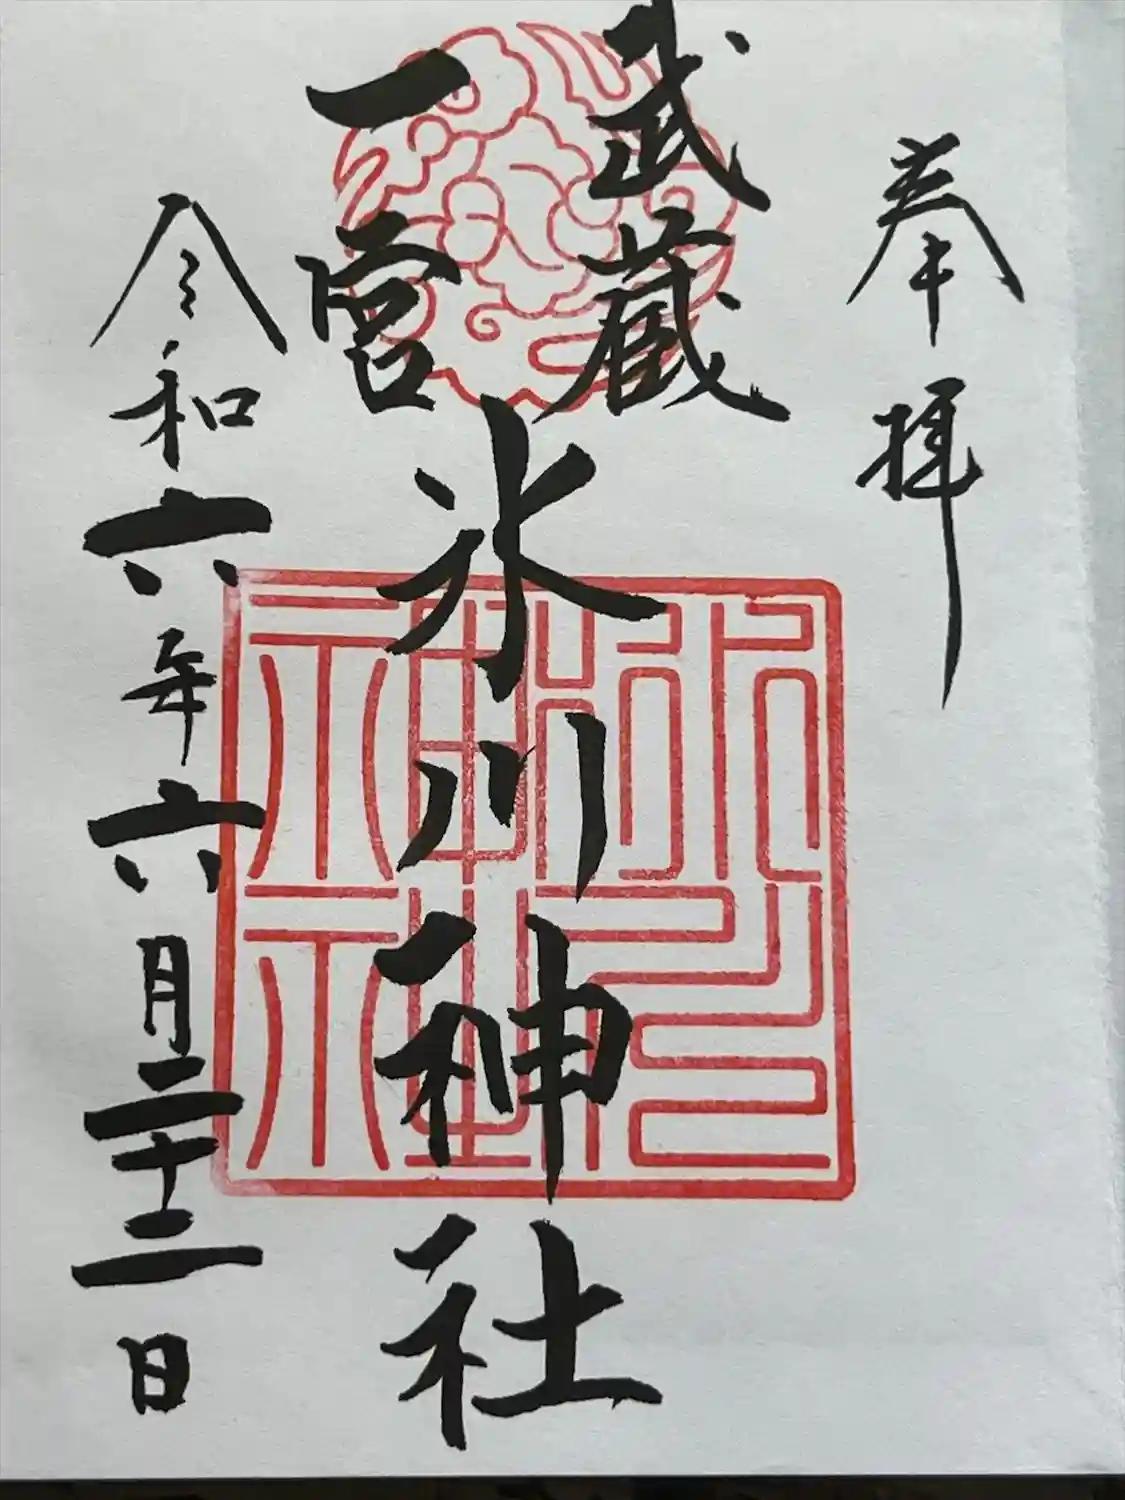 奉拝
武蔵
一宮
氷川神社
令和六年六月二十二日
氷川神社